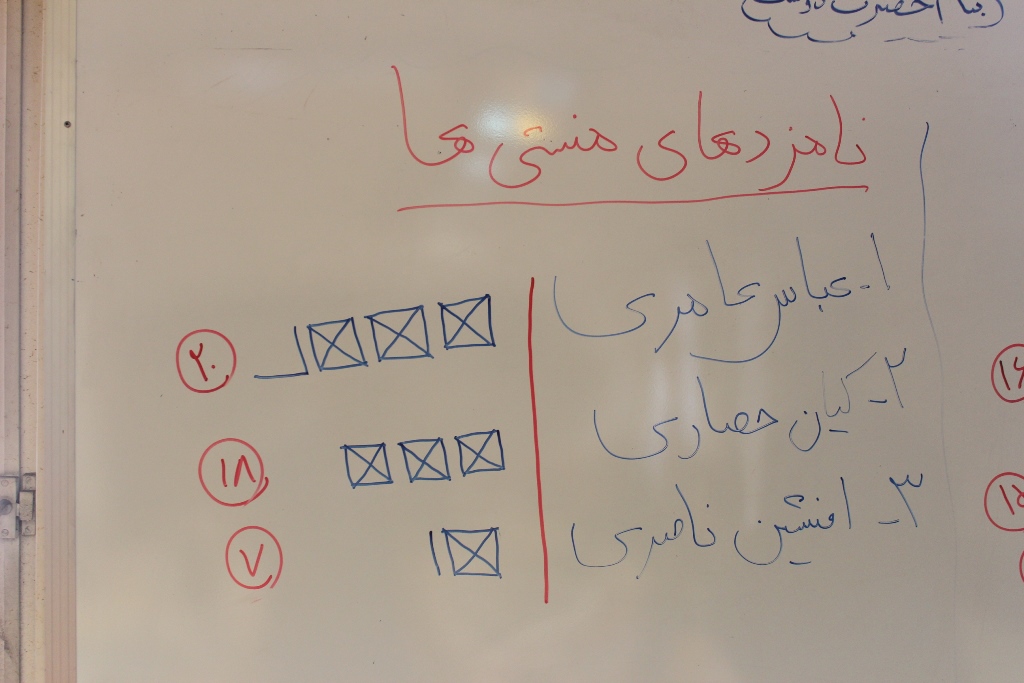 نامزدهای منشی ها
۱. عباس عامری ۲۰
۲- کیان حصاری ۱۸
۳- افشین ناصری ۷
۱۶
۱۵